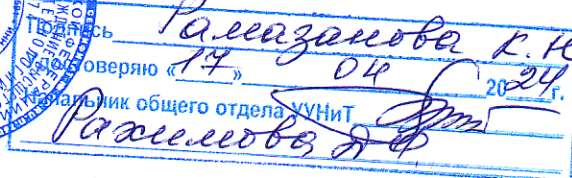 Подпись Рамазанова К. Н
Удостоверяю «17» 04 2024 г.
Начальник общего отдела УУНиТ
Рахимова